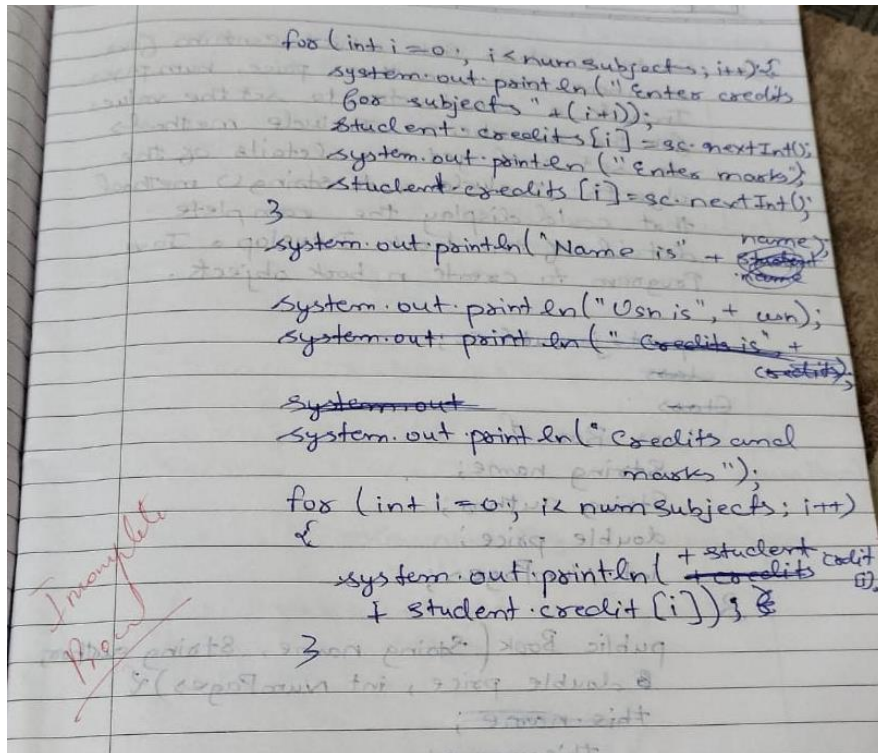 for (int i=0; i<numsubjects; i++) {
system.out.println("Enter credits
for subjects" +(i+1));
student.credits[i] = sc.nextInt();
system.out.println("Enter marks");
student.credits [i] = sc.nextInt();
}
system.out.println("Name is" + name);
student
name
system.out.println("Usn is", + usn);
system.out.println("Credits is" +
credits);
system.out
system.out println("Credits and
marks");
for (int i=0; i< numsubjects; i++)
{
system.out.println( + student credit
+ credits [i].
+ student.credit [i]);
}
Incomplete